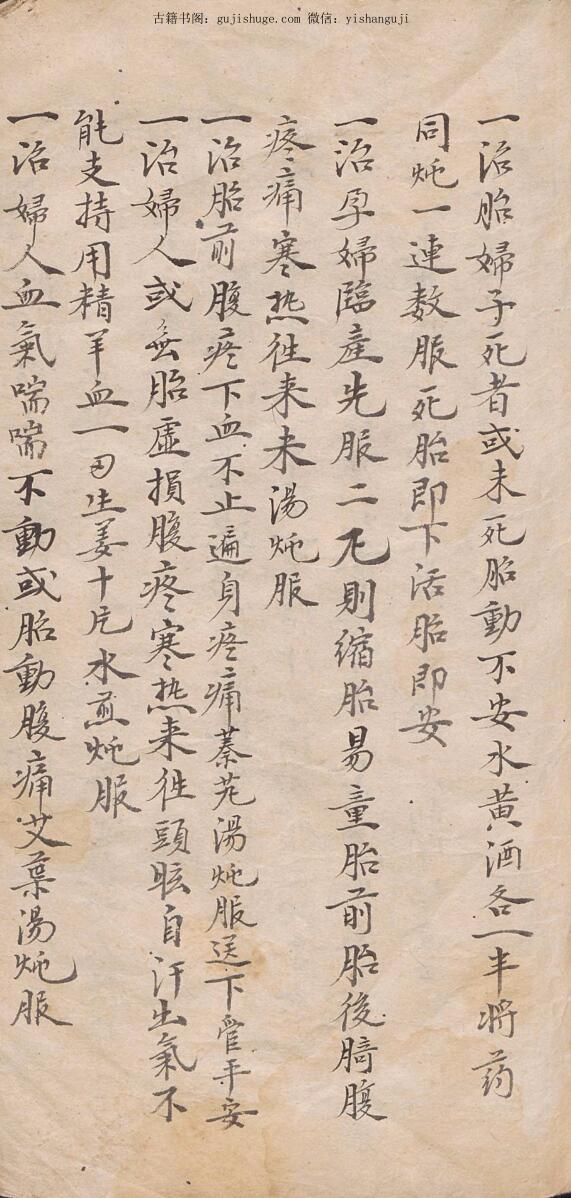 古籍书阁：gujishuge.com 微信：yishanguji
一治胎婦子死者或未死胎動不安水黄酒各一半将药
同炖一連数服死胎即下活胎即安
一治孕婦臨産先服二䘚則缩胎易童胎前胎後臍腹
疼痛寒热徃来未湯炖服
一治胎前腹疼下血不止遍身疼痛蓁艽湯炖服送下管平安
一治婦人或無胎虚損腹疼寒热来徃頭眩自汗出氣不
能支持用精羊血一 生姜十片水煎炖服
一治婦人血氣喘喘不動或胎動腹痛艾葉湯炖服